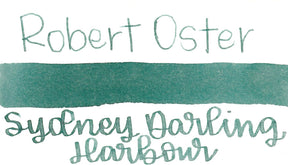 Robert Oster
Sydney Darling
Harbour